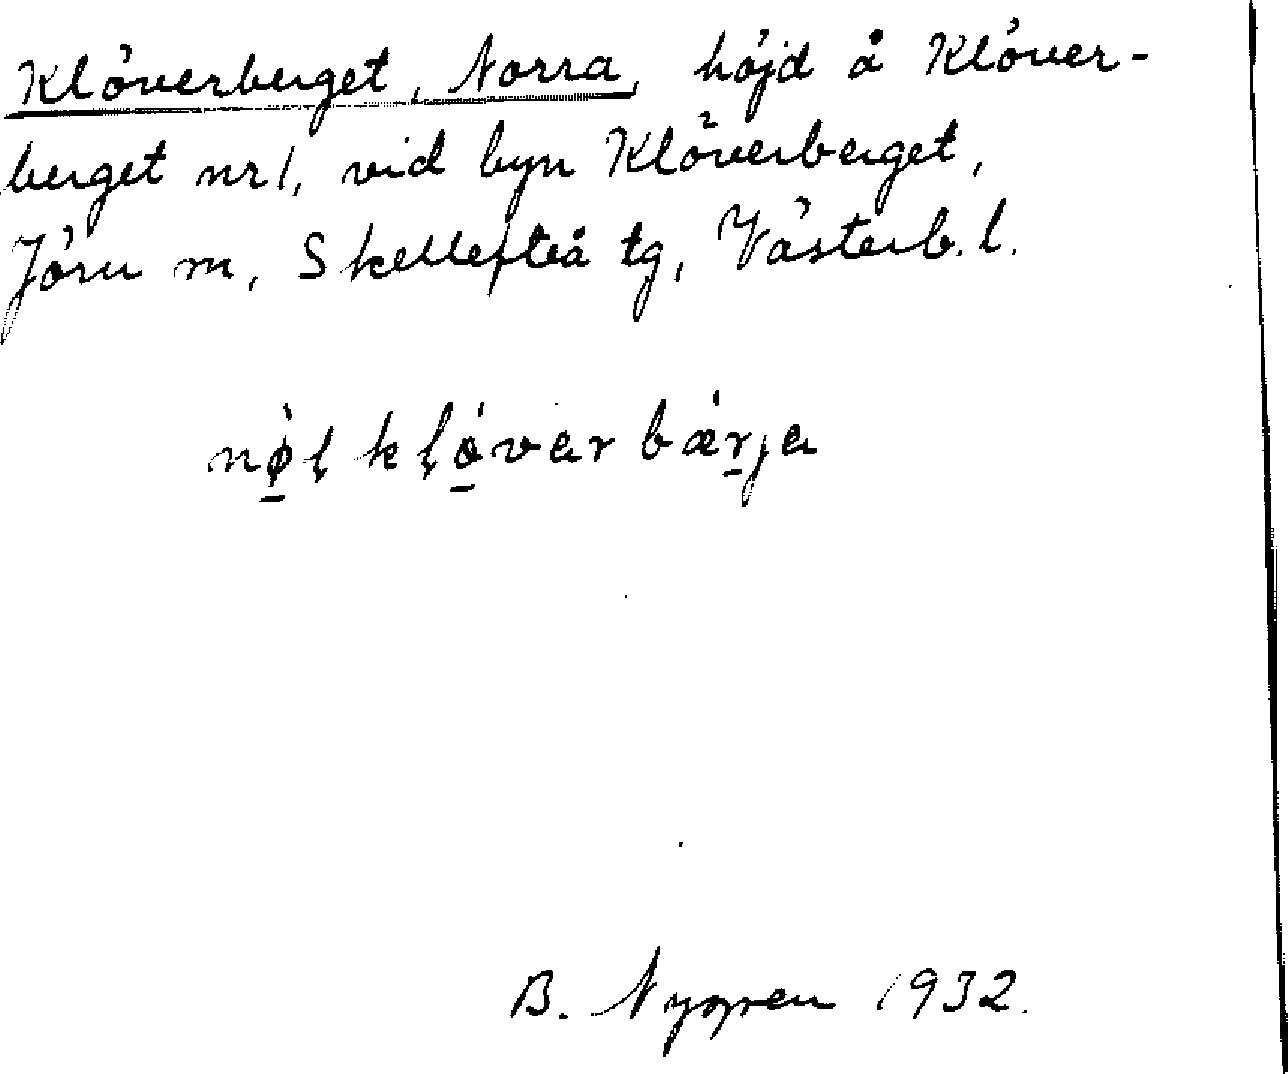 Klöverberget, Norra, höjd å Klöver-
berget nr 1, vid byn Klöverberget,
Jörn sn, Skellefteå tg, Västerb. l.
nø̱̀ḷ kḷǿ̱var bæ̀ṟja
B. Nygren 1932.